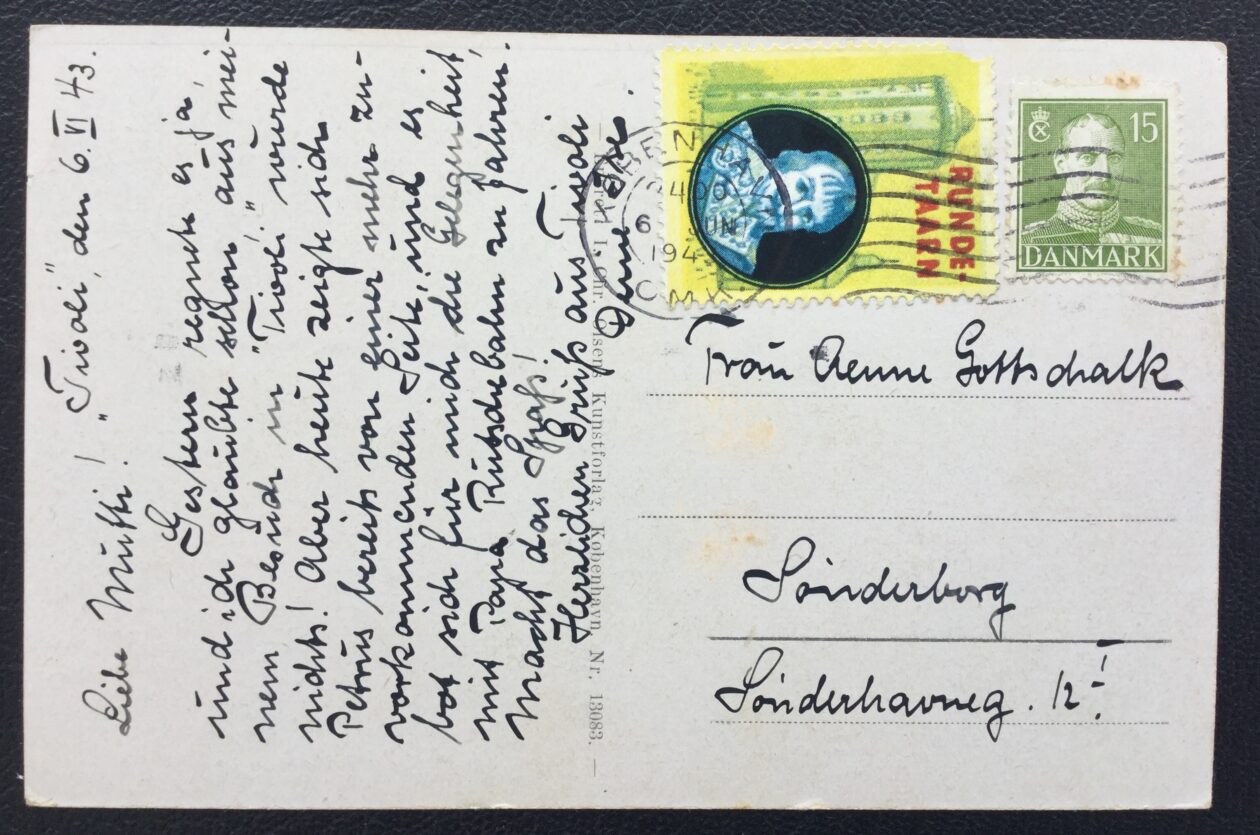 "Tivoli", den 6.VI 43.
Liebe Mutti!
Gestern regnete es ja
und ich glaubte schon aus mei-
nem Besuch in "Tivoli" wurde
nichts! Aber heute zeigte sich
Petrus bereits von einer mehr zu-
vorkommenden Seite, und es
bot sich für mich die Gelegenheit
mit Papa Rutschebahn zu fahren!
Macht das Spaß!
Herzlichen Gruß aus Tivoli
KØBENHAVN
6 JUNI
194
OMK.
RUNDE-
TAARN
15
DANMARK
Frau Aenne Gottschalk
Sønderborg
Sønderhavneg. 12 I
Chr. Olsens Kunstforlag, København Nr. 13083.